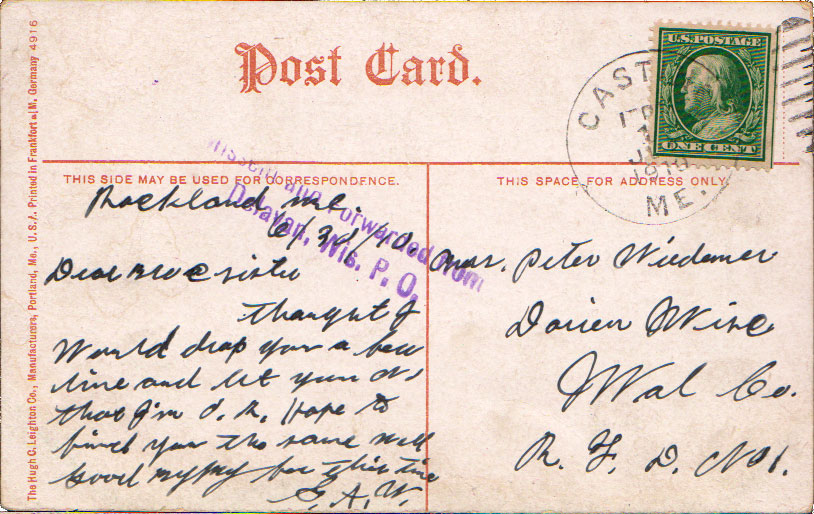 Post Card.
U.S. POSTAGE
ONE CENT
CAST
1910
ME.
THIS SIDE MAY BE USED FOR CORRESPONDENCE.
THIS SPACE FOR ADDRESS ONLY.
Missent and Forwarded from
Delavan, Wis. P. O.
Rockland Me.
Dear Bro & sister
thought I
Would drop you a few
line and let you
that I'm O. K. Hope to
find you the same well
Good for this time
G. A. W.
Mrs. Peter Wiedemer
Darien Wisc
Wal Co.
R. F. D. No 1.
The Hugh C. Leighton Co., Manufacturers, Portland, Me., U.S.A. Printed in Frankfort a/M, Germany 4916